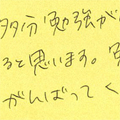 多分勉強が
ると思います。
がんばってく